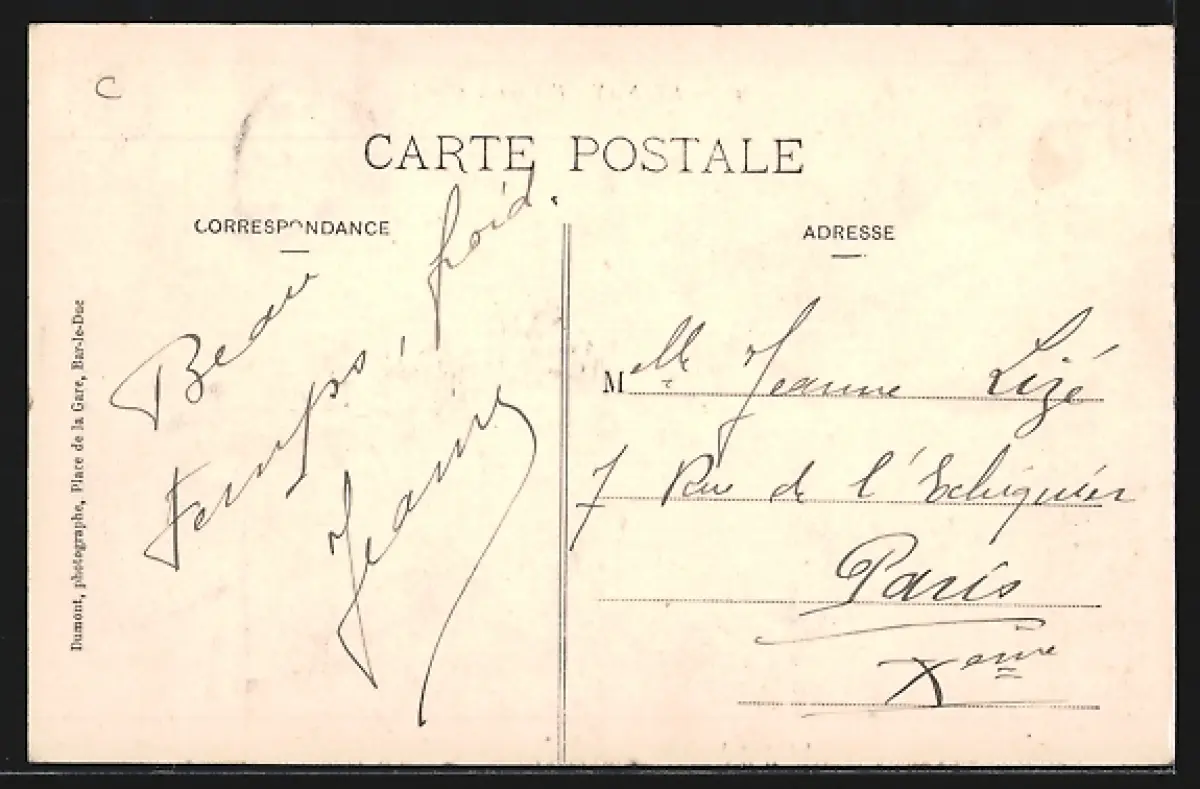 C
CARTE POSTALE
CORRESPONDANCE
ADRESSE
Beau
temps, froid.
Dumont, photographe, Place de la Gare, Bar-le-Duc
Mlle Jeanne Lizé
7 Rue de l'Echiquier
Paris
Xeme